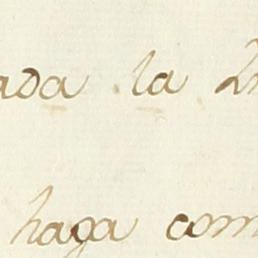 ada la
haga com